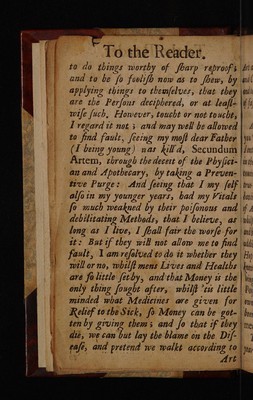 To the Reader.
to do things worthy of ſharp reproof;
and to be ſo fooliſh now as to ſhew, by
applying things to themſelves, that they
are the Perſons deciphered, or at leaſt-
wiſe ſuch. However, toucht or not toucht,
I regard it not; and may well be allowed
to find fault, ſeeing my moſt dear Father
(I being young) was kill'd, Secundum
Artem, through the deceit of the Phyſici-
an and Apothecary, by taking a Preven-
tive Purge: And ſeeing that I my ſelf
alſo in my younger years, had my Vitals
ſo much weakned by their poiſonous and
debilitating Methods, that I believe, as
long as I live, I ſhall fair the worſe for
it: But if they will not allow me to find
fault, I am reſolved to do it whether they
will or no, whilſt mens Lives and Healths
are ſo little ſet by, and that Money is the
only thing ſought after, whilſt 'tis little
minded what Medicines are given for
Relief to the Sick, ſo Money can be got-
ten by giving them; and ſo that if they
die, we can but lay the blame on the Diſ-
eaſe, and pretend we walkt according to
Art